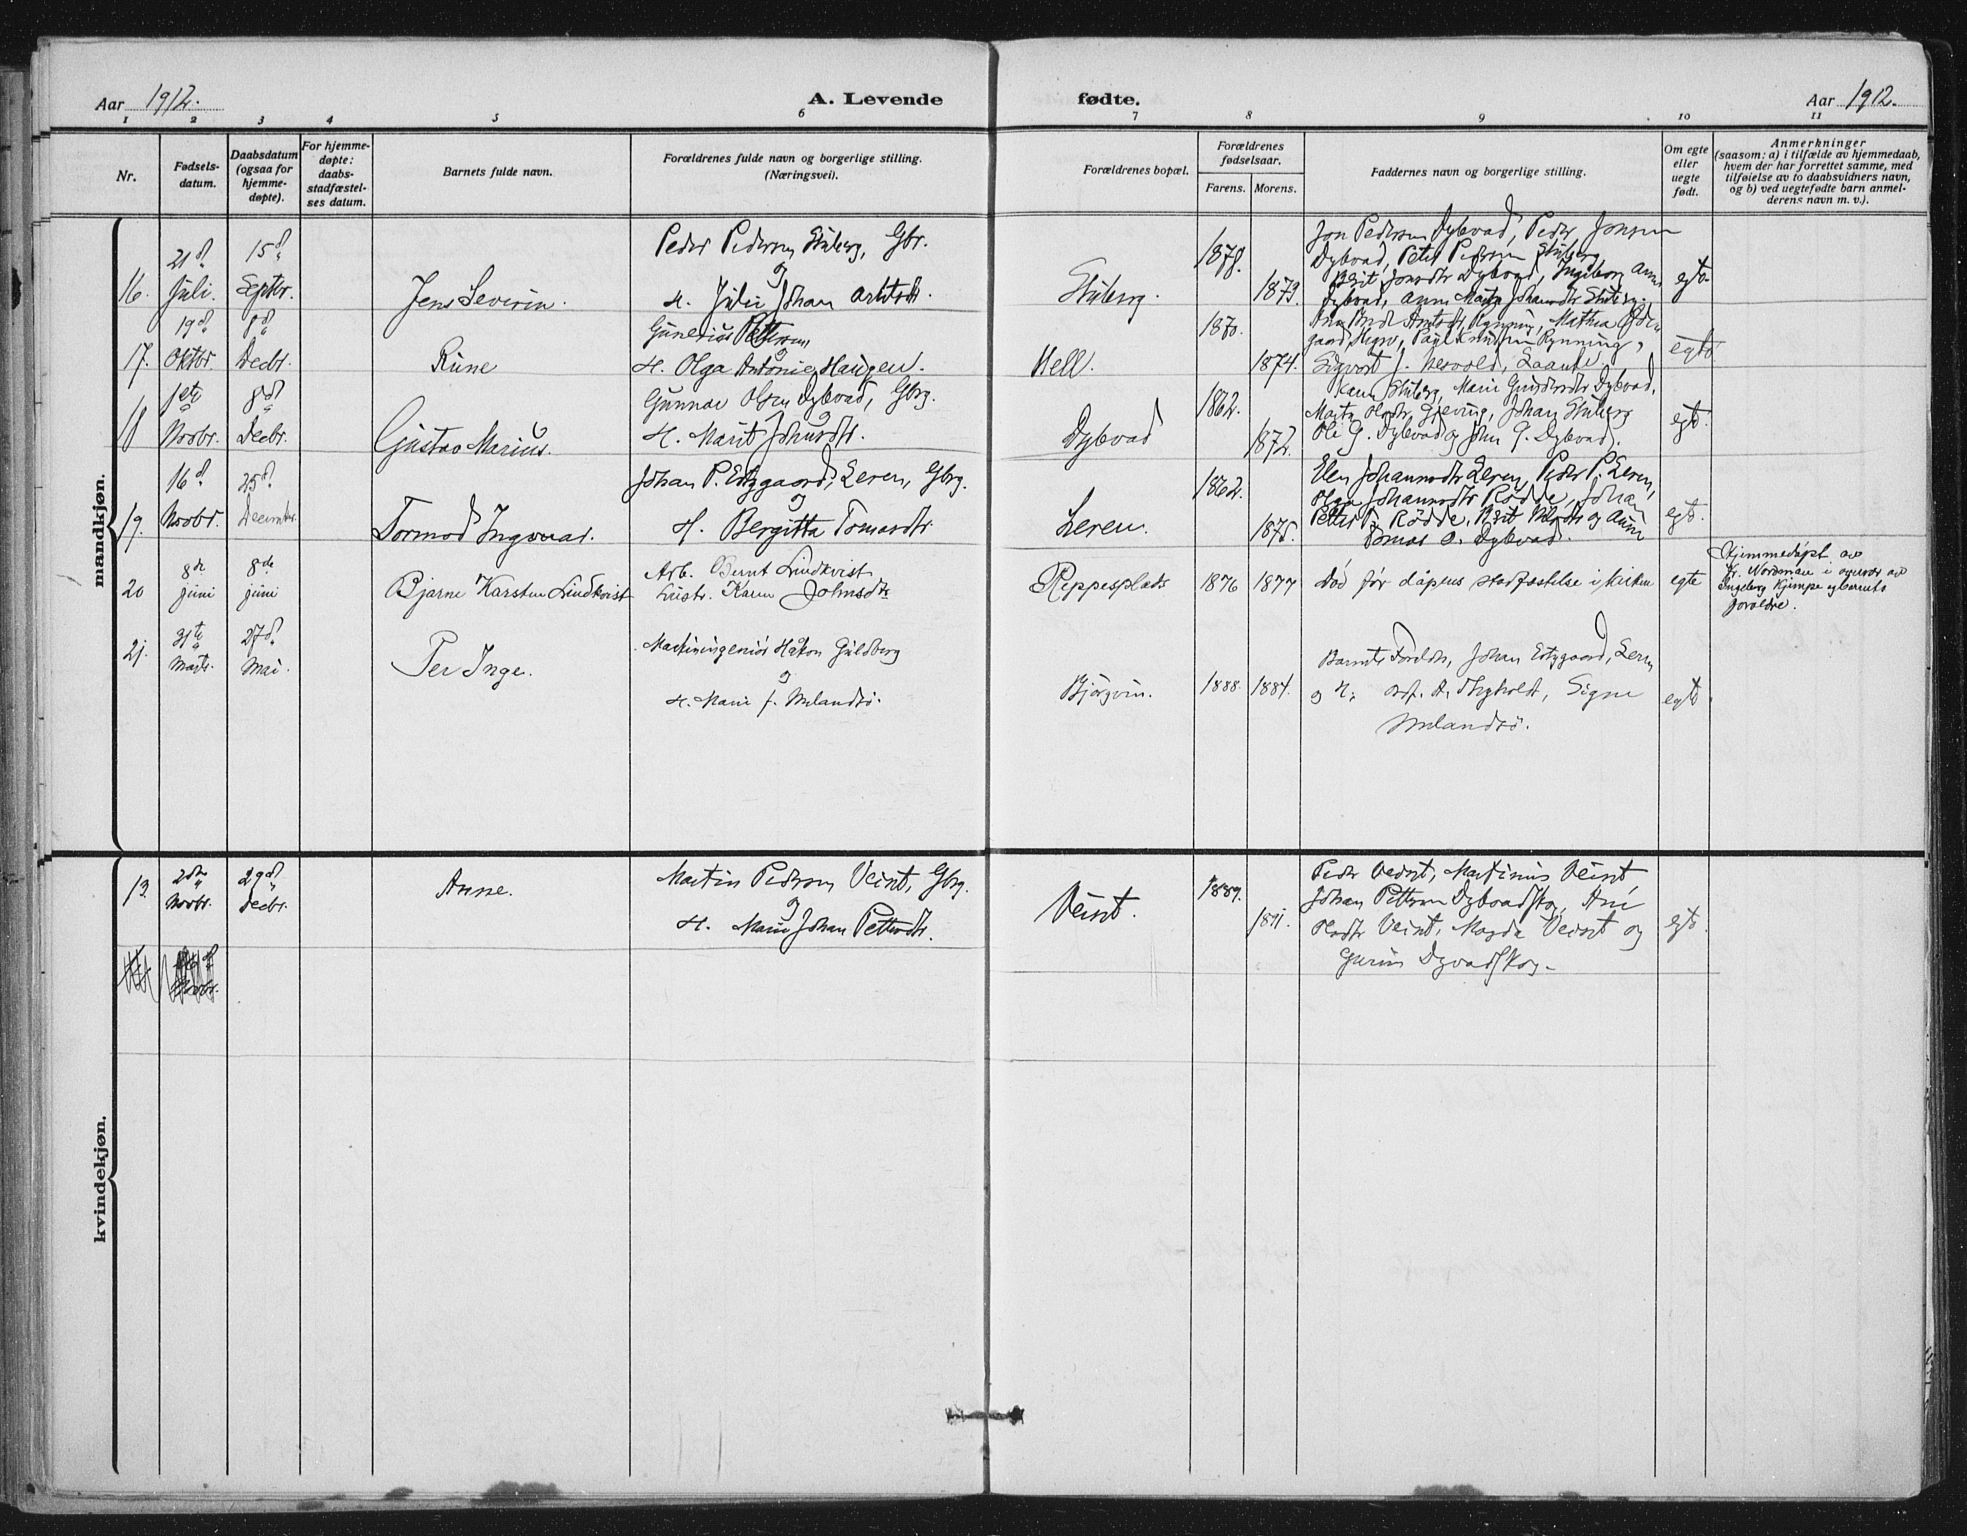 Aar 1912.
A. Levende fødte.
Aar 1912.
1 2 3 4 5 6 7 8 9 10 11
Nr.
Fødsels-
datum.
Daabsdatum
(ogsaa for
hjemme-
døpte).
For hjemme-
døpte:
daabs-
stadfæstel-
ses datum.
Barnets fulde navn.
Forældrenes fulde navn og borgerlige stilling.
(Næringsvei).
Forældrenes bopæl.
Forældrenes
fødselsaar.
Farens. Morens.
Faddernes navn og borgerlige stilling.
Om egte
eller
uegte
født.
Anmerkninger
(saasom: a) i tilfælde av hjemmedaab,
hvem der har forrettet samme, med
tilføielse av to daabsvidners navn,
og b) ved uegtefødte barn anmel-
derens navn m. v.).
mandkjøn.
16.
21d
Juli.
15d
Septbr.
Jens Severin.
Peder Pedersen Stuberg, Gbr.
og
H. Julie Johan
Stuberg.
1878.
1879.
Jon Pedersen Dybvad, Peder Jonsen
Dybvad, Peter Pedersen Stuberg
Berit Jonsdtr Dybvad, Ingeborg Anna
Dybvad, Anna Marta Johansdtr Stuberg.
egte
17.
19d
Oktbr.
8d
Decbr.
Rune
Gunerius Pettersen
H. Olga Antonie Haugen.
Hell.
1870.
1874.
Rynning, Mathea
Paul Knudsen Rynning,
Sigvart J. Laante
egte
18
1ste
Novbr.
8d
Decbr.
Gustav Marius.
Gunnar Olsen Dybvad, Gbrg.
H. Marit Johnsdtr.
Dybvad
1862.
1872.
Karen Stuberg, Marie Dybvad,
Marta Olsdtr. Gjeving, Johan Stuberg
Ole G. Dybvad og John G. Dybvad.
egte
19.
16d
Novbr.
25d
December
Tormod Ingvar.
Johan P. Estygaard, Leren, Gbrg.
og
H. Bergitta Tomasdtr
Leren.
1862.
1875.
Elen Johannesdtr Leren, Peder P. Leren,
Olga Johannesdtr Rødde, Johan
Petter P. Rødde, Berit og Anne
Tomas O. Dybvad.
egte.
20
8de
juni
8de
juni
Bjarne Karsten Lindkvist
Arb. Bernt Lindkvist
Hustr. Karen Johnsdtr
Reppesplads
1876 1877
død før dåpens stadfæstelse i kirken
egte
Hjemmedøpt av
Fr. Nordmæle i overvær av
Ingeborg Kjempe og barnets
forældre.
21.
31te
Marts.
27d
Mai.
Per Inge.
Maskiningeniør Håkon Guldberg
og
H. Marie f. Melandsø.
Bjørgvin.
1888. 1884.
Barnets Foreldre, Johan Estygaard, Leren
og H., Thyholdt, Signe
Melandsø.
egte
kvindekjøn.
13.
2den
Novbr.
29d
Decbr.
Anne.
Martin Pedersen Veist, Gbrg.
og
H. Marie Johan Pettersdtr.
Veist.
1889.
1891.
Peder Veist, Martinus Veist
Johan Petersen Dybvadskog, Ane
Olsdtr Veist, Magda Veist og
Gurine Dyvadskog.
egte.